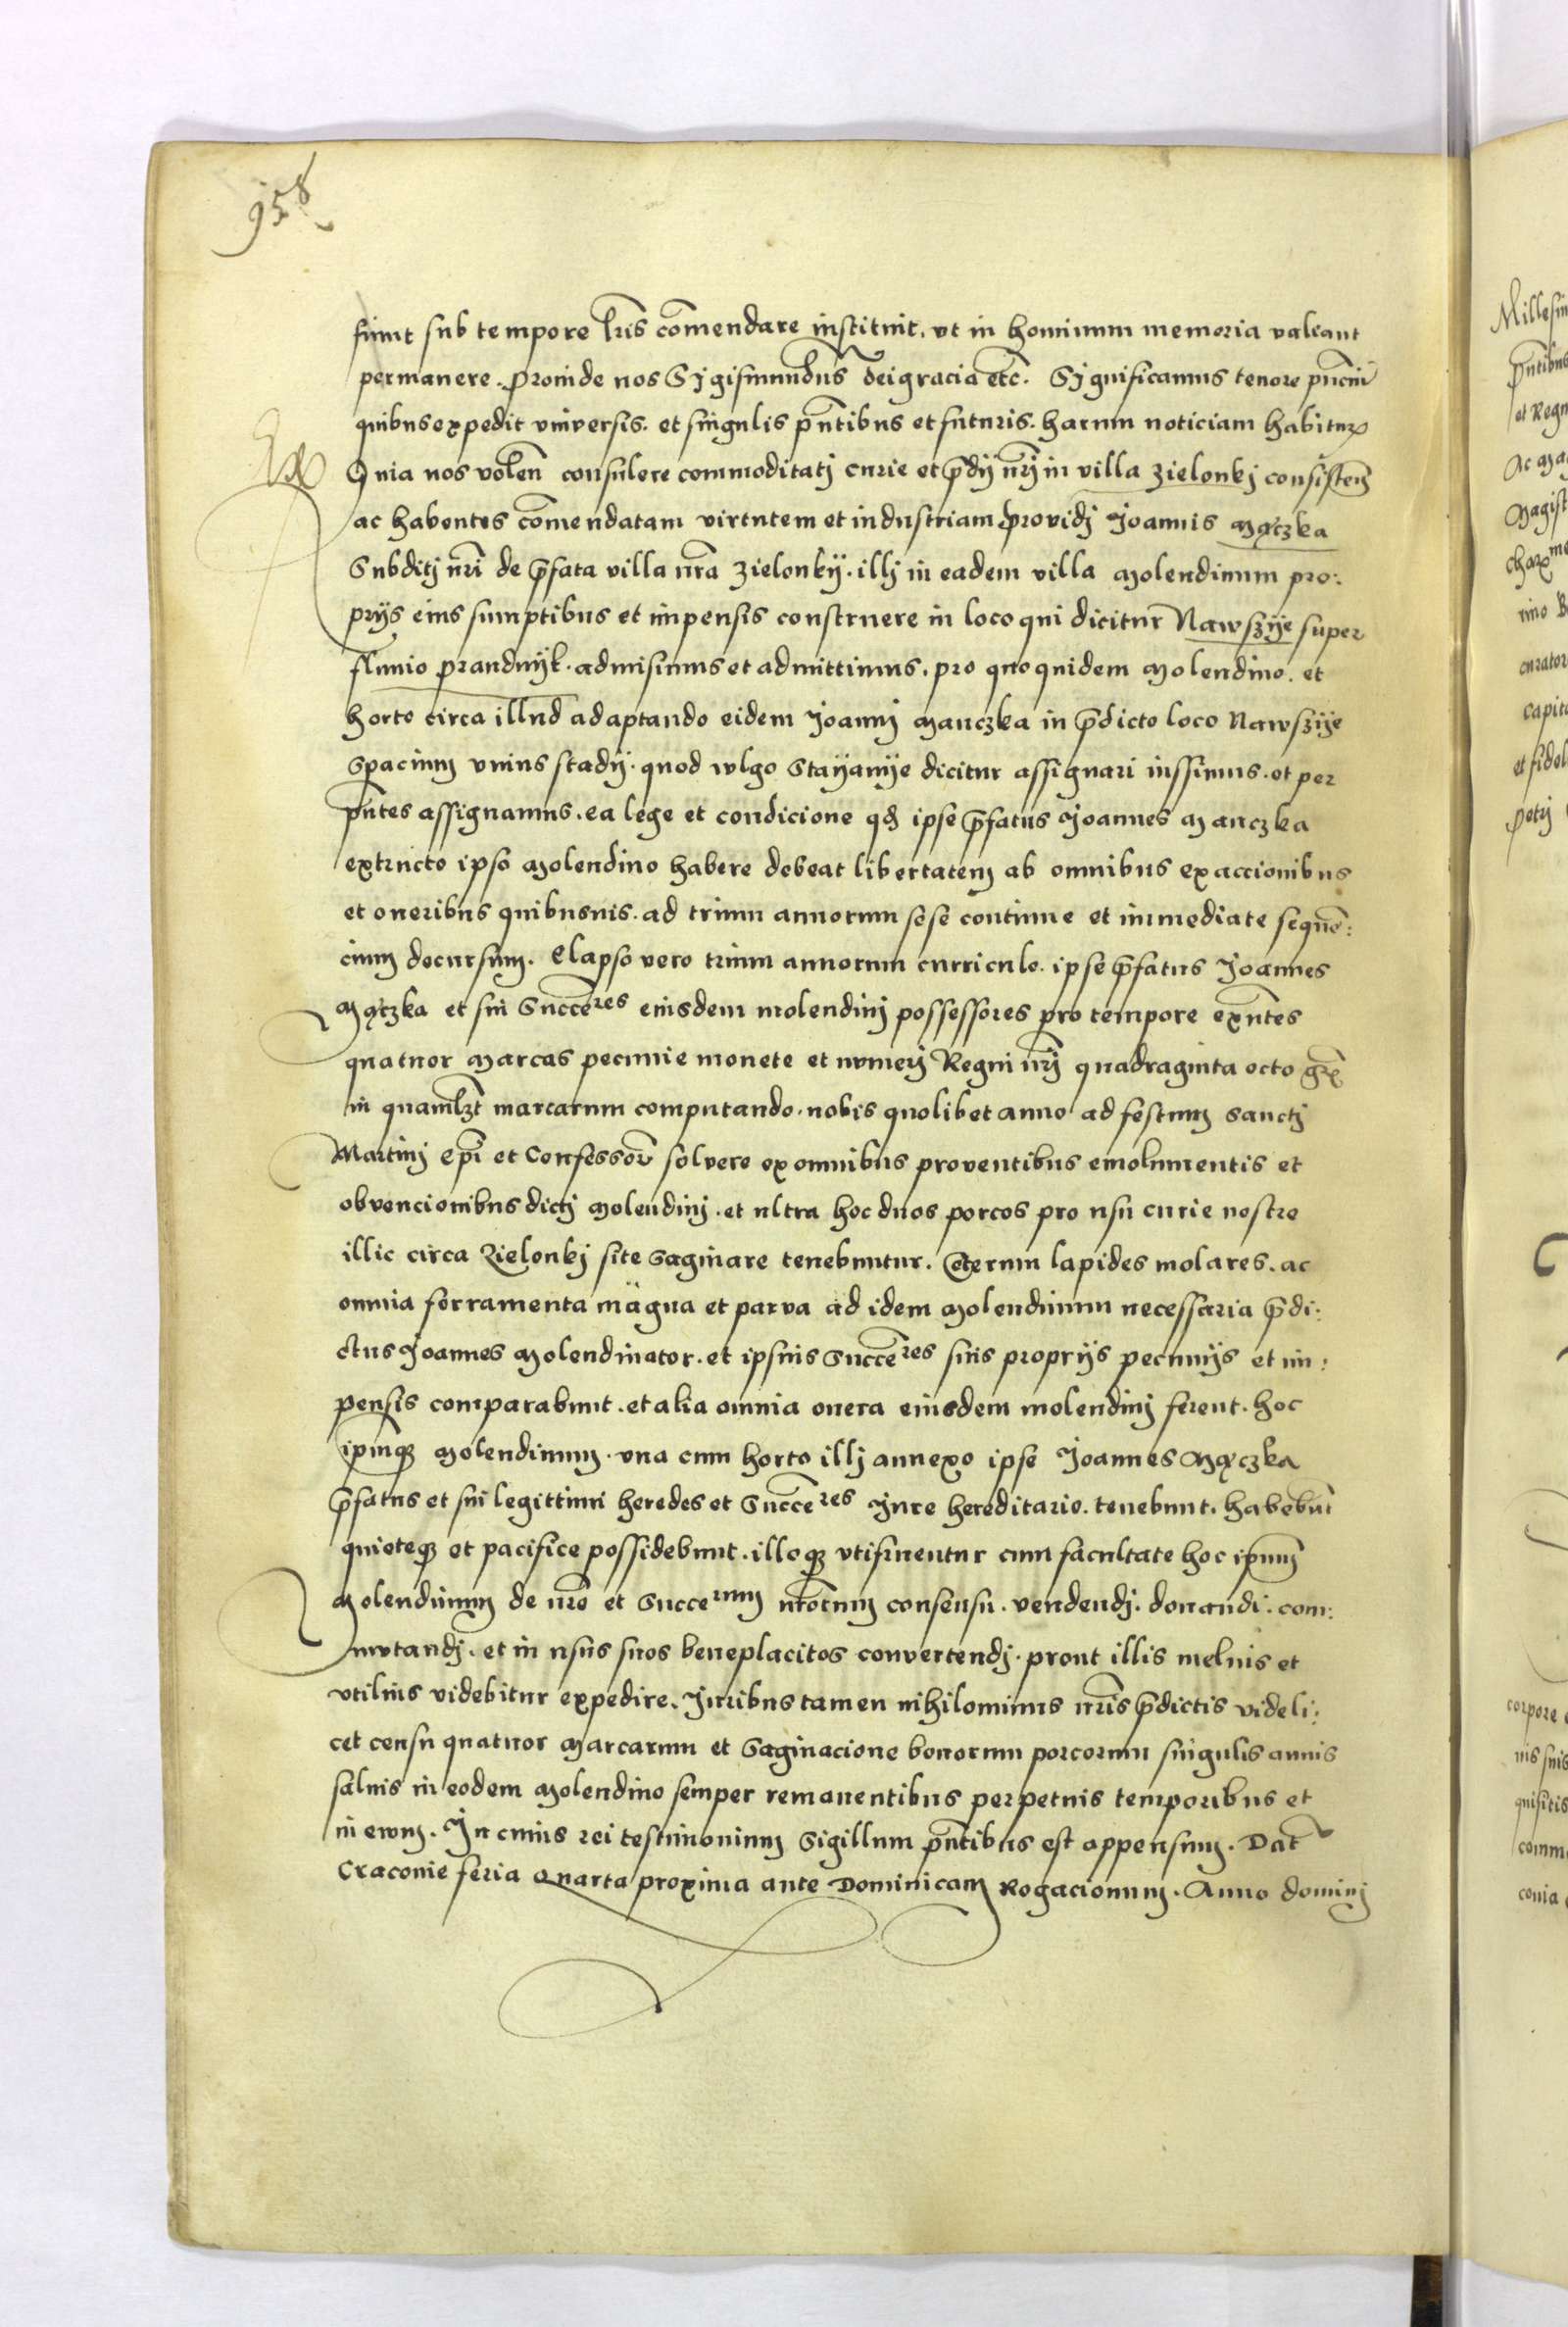 958
fiunt sub tempore l̃ris cõmendare instituit. vt in hominum memoria valeant
permanere. proinde nos Sigismundus deigracia etc̃. Significamus tenore pñcm̃
quibus expedit vniversis. et singulis pñtibus et futuris. harum noticiam habitur̃
Quia nos voleñ consulere commoditatj curie et p̃dij nr̃j in villa zielonkj consisteñ
ac habentes cõmendatam virtutem et industriam providj Joannis Mączka
Subditj nr̃i de p̃fata villa nr̃a zielonkij. illj in eadem villa Molendinum pro:
prijs eius sumptibus et impensis construere in loco qui dicitur Nawszije super
fluuio prandnijk. admisimus et admittimus. pro quo quidem Molendino. et
horto circa illud adaptando eidem Joannj Manczka in p̃dicto loco Nawszije
Spacium vnius stadij. quod wlgo Stayanije dicitur assignari iussimus. et per
pñtes assignamus. ea lege et condicione qd̃ ipse p̃fatus Joannes Manczka
extructo ipso Molendino habere debeat libertatem ab omnibus exaccionibus
et oneribus quibusuis. ad trium annorum sese continue et immediate sequẽ:
cium decursum. Elapso vero trium annorum curriculo. ipse p̃fatus Joannes
Mączka et sui Succẽres eiusdem molendinj possessores pro tempore exñtes
quatuor Marcas pecunie monete et numerj Regni nr̃j quadraginta octo gr̃
in quamlz̃t marcarum computando. nobis quolibet anno ad festum Sanctj
Martinj ep̃i et Confessor̃ solvere ex omnibus proventibus emolumentis et
obvencionibus dictj Molendinj. et ultra hoc duos porcos pro usu curie nostre
illic circa Zielonkj site Saginare tenebuntur. Ceterum lapides molares. ac
omnia ferramenta magna et parva ad idem Molendinum necessaria p̃di:
ctus Joannes Molendinator. et ipsius Succẽres suis proprijs pecunijs et im:
pensis comparabunt. et alia omnia onera eiusdem molendinj ferent. hoc
ipm̃q Molendinum. vna cum horto illj annexo ipse Joannes Mączka
p̃fatus et sui legittimi heredes et Succẽres Jure hereditario. tenebunt. habebũt
quieteq et pacifice possidebunt. illoq vtifruentur cum facultate hoc ipm̃
Molendinum de nr̃o et Succerum nr̃orum consensu. vendendj. donandi. com:
mutandj. et in usus suos beneplacitos convertendj. prout illis melius et
vtilius videbitur expedire. Juribus tamen nihilominus nr̃is p̃dictis videli:
cet censu quatuor Marcarum et Saginacione bonorum porcorum singulis annis
saluis in eodem Molendino semper remanentibus perpetuis temporibus et
in ewm. In cuius rei testimonium Sigillum pñtibus est appensum. Dat̃
Craconie feria Quarta proxima ante Dominicam Rogacionum. Anno dominj